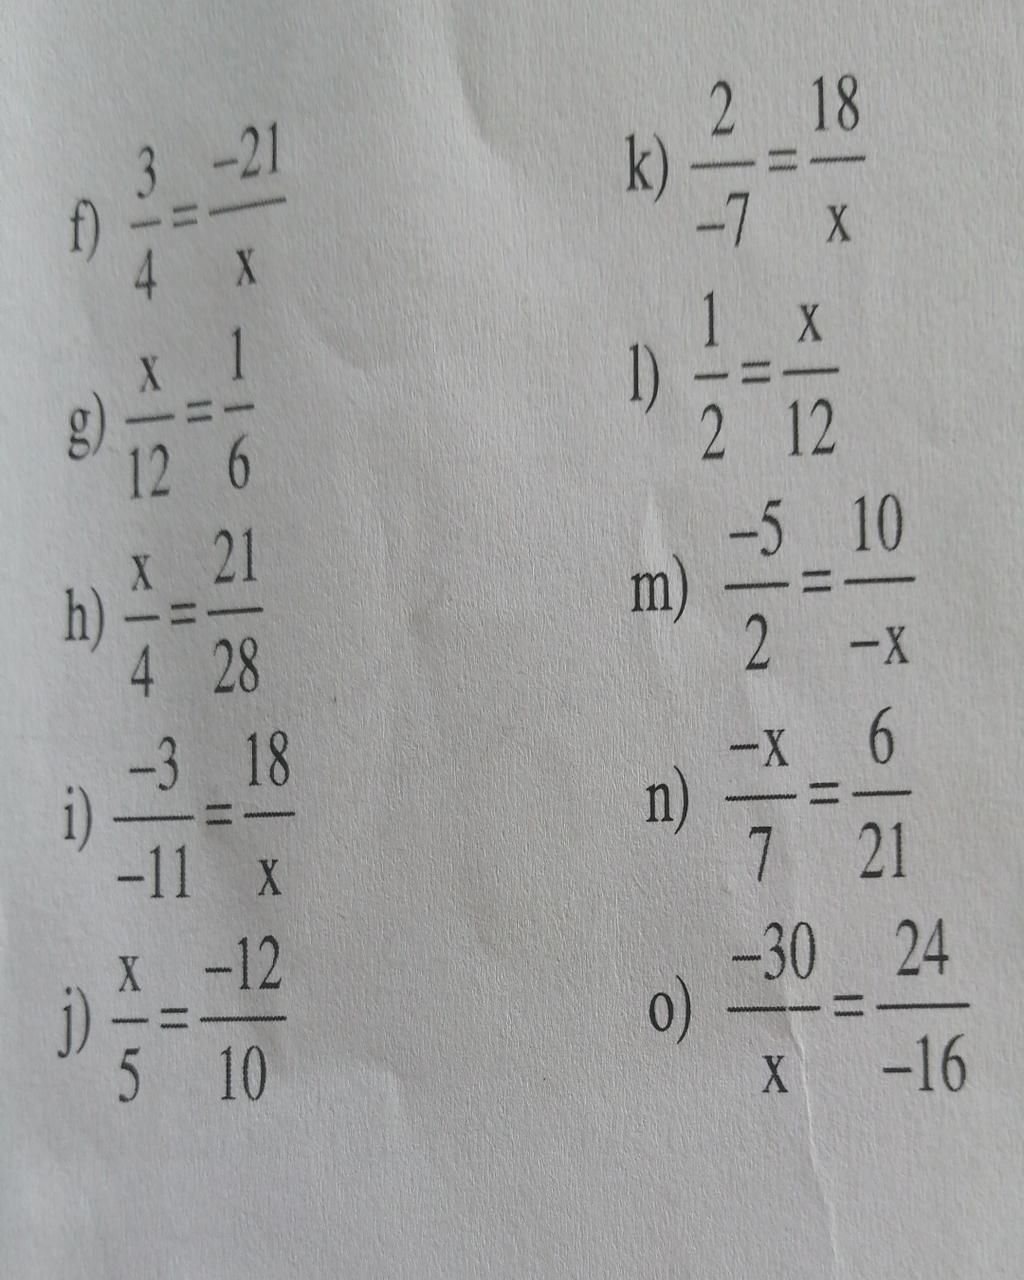 f) 3/4 = –21/x
g) x/12 = 1/6
h) x/4 = 21/28
i) –3/–11 = 18/x
j) x/5 = –12/10
k) 2/–7 = 18/x
l) 1/2 = x/12
m) –5/2 = 10/–x
n) –x/7 = 6/21
o) –30/x = 24/–16